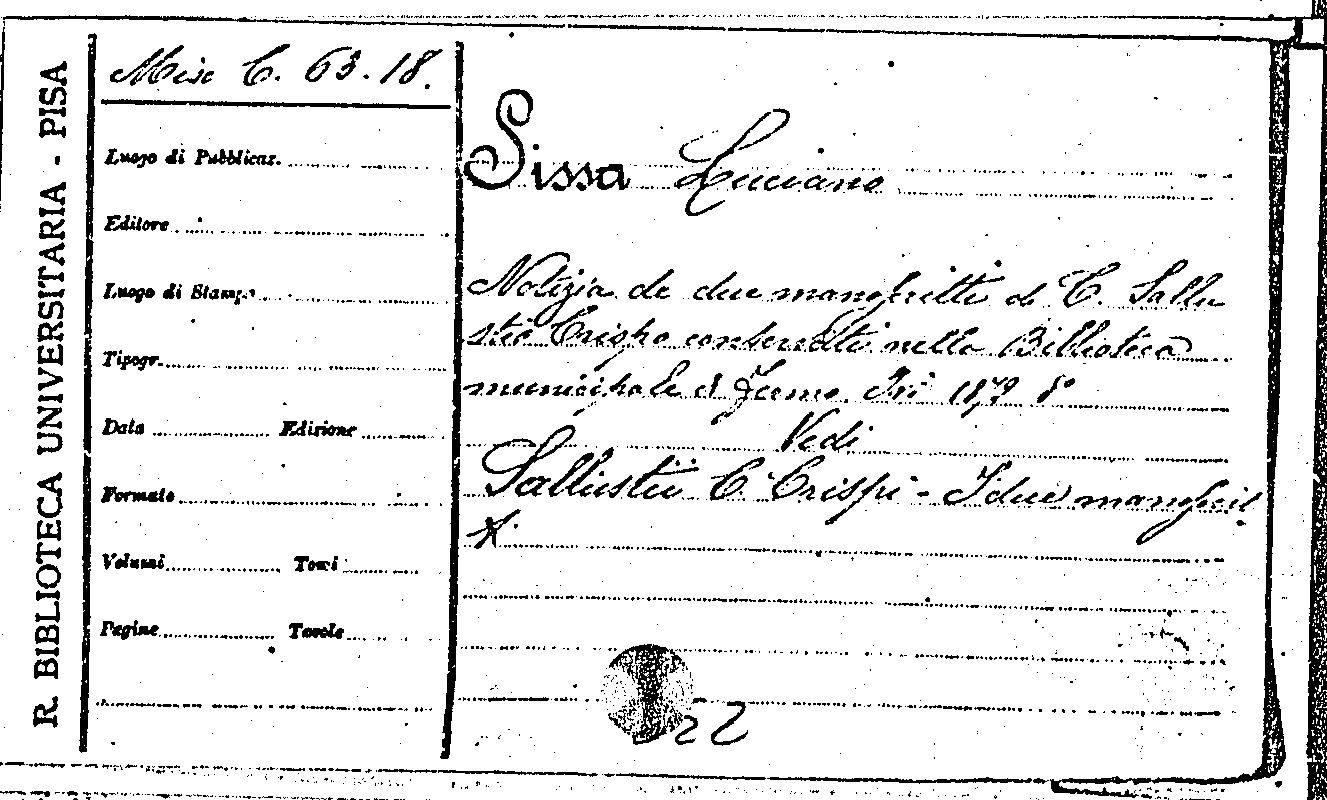 R. BIBLIOTECA UNIVERSITARIA - PISA
Misc C. 63.18.
Luogo di Pubblicaz.
Editore
Luogo di Stampa
Tipogr.
Data Edizione
Formato
Volumi Tomi
Pagine Tavole
Sissa Luciano
Notizia de due manoscritti di C. Sallu
stio Crispo conservati nella Biblioteca
municipale di Fermo. Ivi 1879 8°
Vedi
Sallustii C. Crispi - I due manoscrit
ti.
22